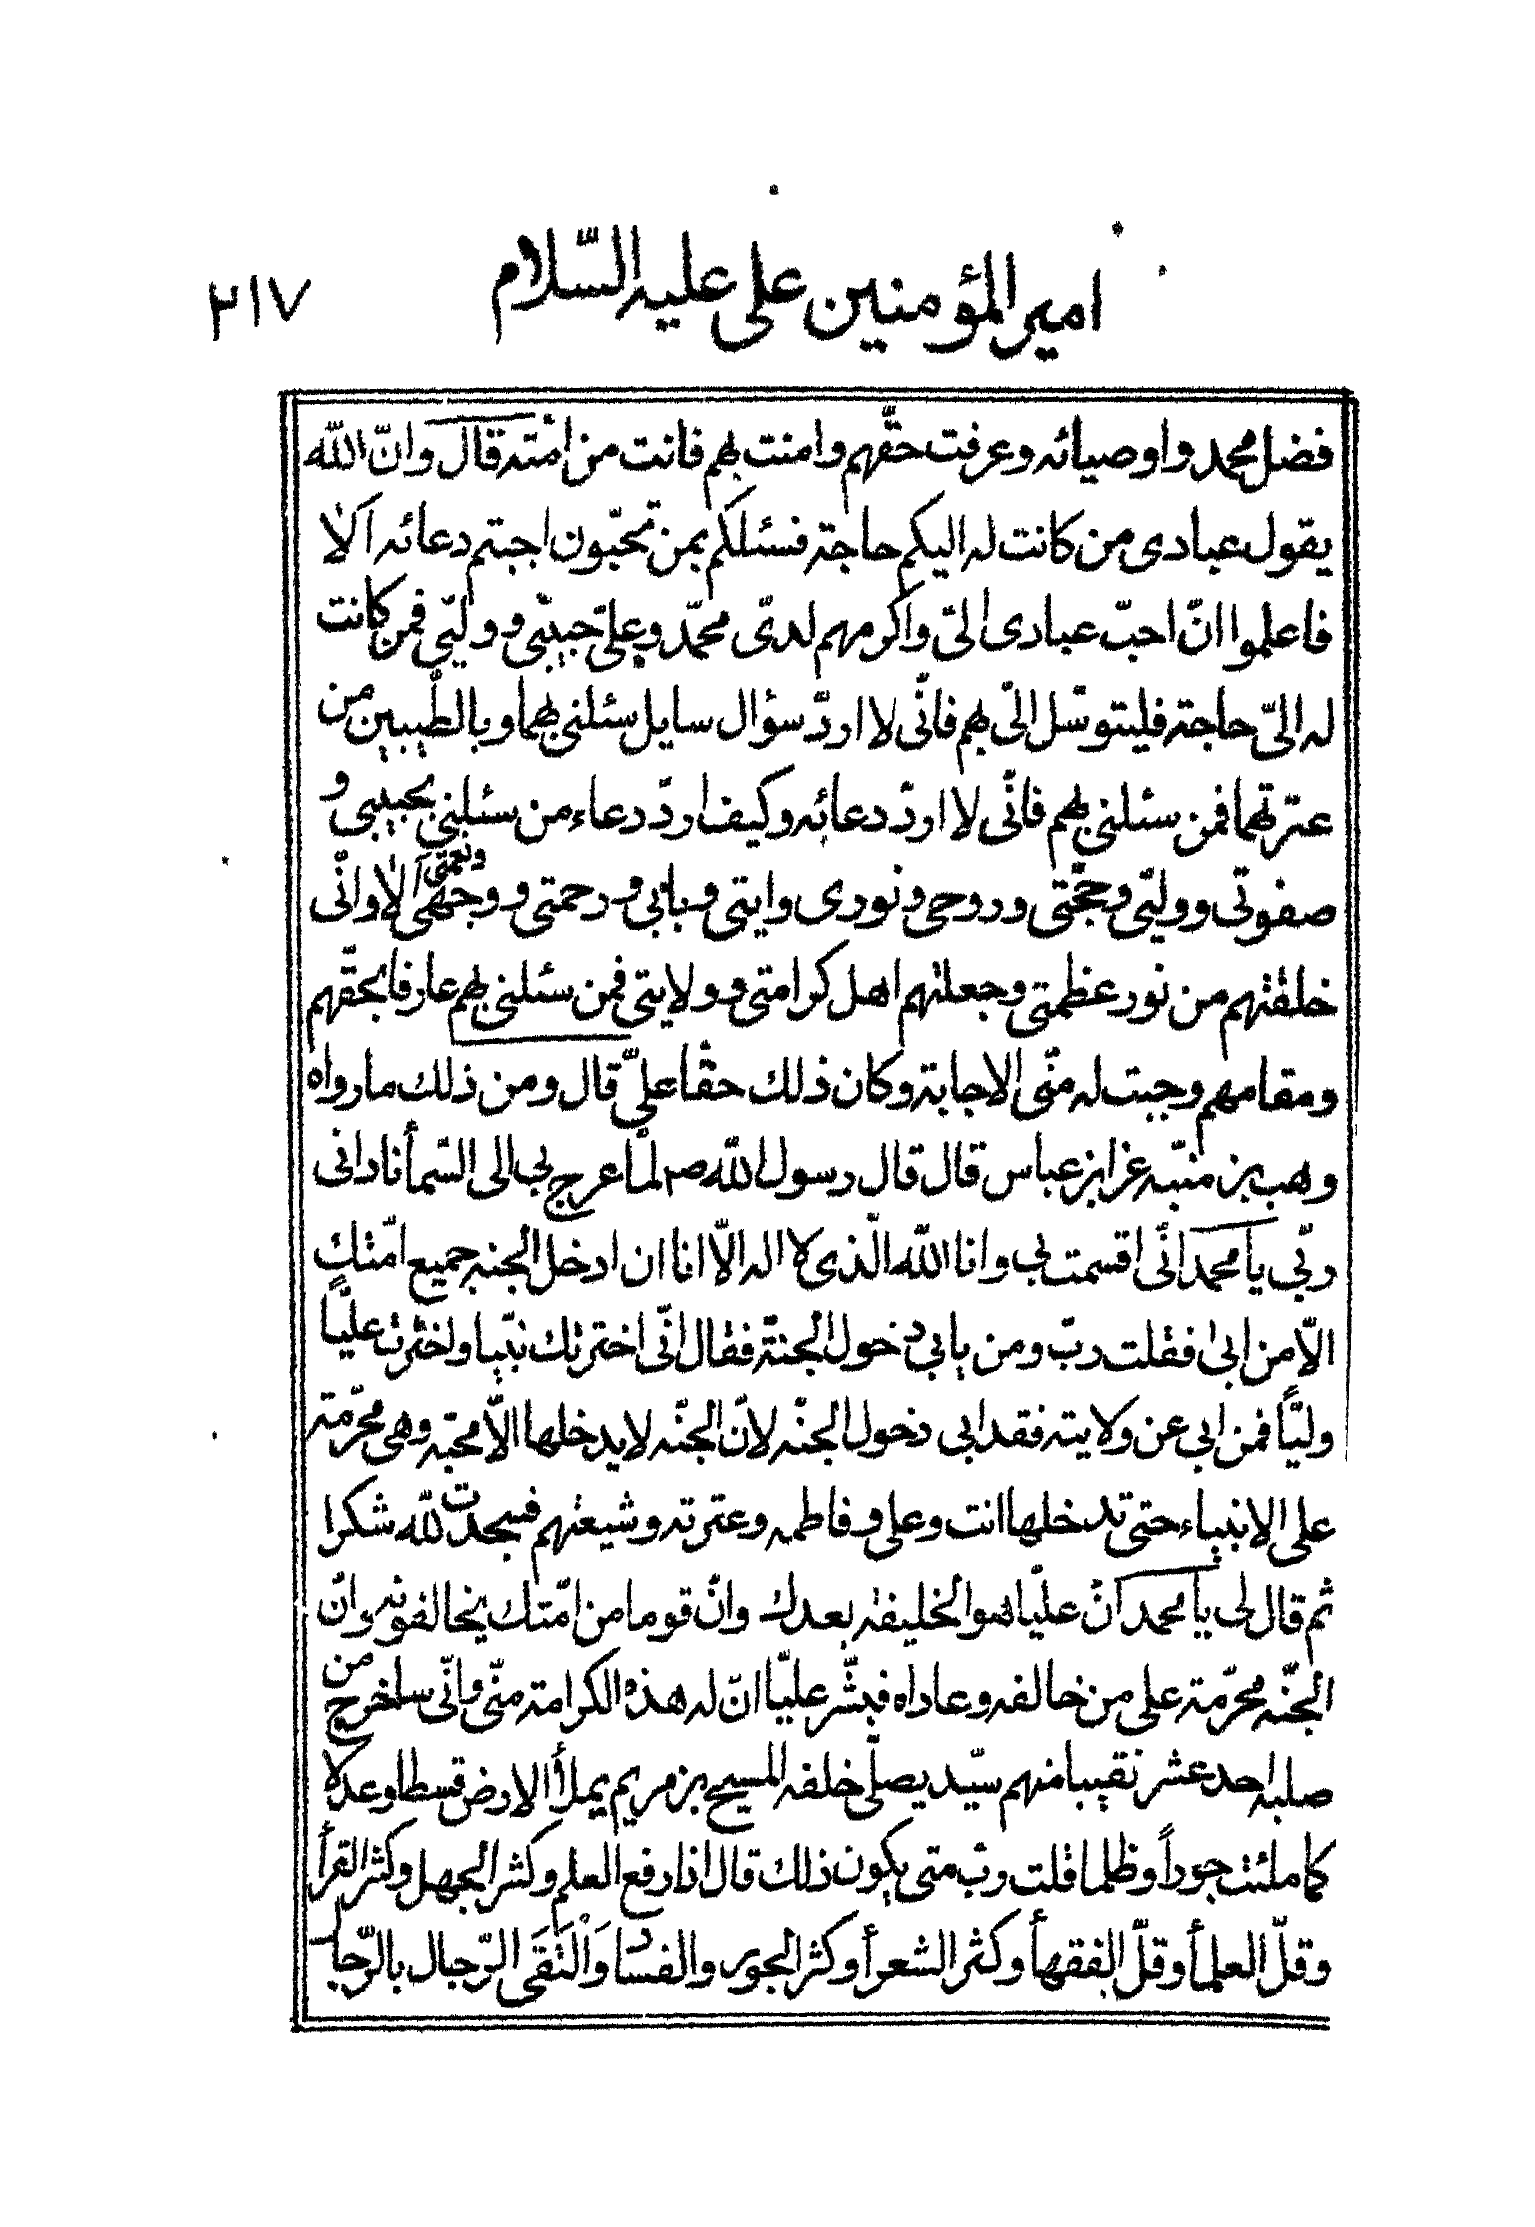 امير المؤمنين على عليه السّلام
٢١٧
فضل محمد واوصيائه وعرفت حقّهم وامنت بهم فانت من امّته قال وانّ الله
يقول عبادى من كانت له اليكم حاجة فسئلكم بمن تحبّون اجبتم دعائه الا
فاعلموا انّ احبّ عبادى الىّ واكرمهم لدىّ محمّد وعلىّ حبيبى و وليّى فمن كانت
له الىّ حاجة فليتوسّل الىّ بهم فانّى لا اردّ سؤال سايل سئلنى بهما وبالطّيبين من
عترتهما فمن سئلنى بهم فانّى لا اردّ دعائه وكيف اردّ دعاء من سئلنى بحبيبى و
صفوتى ووليّى وحجّتى وروحى ونورى وايتى وبابى ورحمتى و وجهى ونعمتى الا وانّى
خلقتهم من نور عظمتى وجعلتهم اهل كرامتى و ولايتى فمن سئلنى بهم عارفا بحقّهم
ومقامهم وجبت له منّى الاجابة وكان ذلك حقّا علىّ قال ومن ذلك مارواه
وهب بن منبّه عن ابن عباس قال قال رسول الله ص لمّا عرج بى الى السّمأ نادانى
ربّى يا محمد انّى اقسمت بى وانا الله الّذى لا اله الّا انا ان ادخل الجنه جميع امّتك
الّا من ابى فقلت ربّ ومن يابى دخول الجنّة فقال انّى اخترتك نبيّا واخترت عليّا
وليّا فمن ابى عن ولايته فقد ابى دخول الجنّه لانّ الجنّه لا يدخلها الّا محبّه وهى محرّمة
على الانبياء حتى تدخلها انت وعلى و فاطمه وعترته وشيعتهم فسجدت لله شكرا
ثم قال لى يا محمد انّ عليّا هو الخليفه بعدك وانّ قوما من امّتك يخالفونه وانّ
الجنّه محرّمة على من خالفه وعاداه فبشّر عليّا انّ له هذه الكرامة منّى وانّى ساخرج من
صلبه احد عشر نقيبا منهم سيّد يصلّى خلفه المسيح بن مريم يملأ الارض قسطا وعدلا
كما ملئت جوراً وظلما قلت ربّ متى يكون ذلك قال اذا رفع العلم وكثر الجهل وكثر القرأ
وقلّ العلمأ وقلّ الفقهأ وكثر الشعرأ وكثر الجور والفساد وَالْتَقَى الرّجال بالرّجال